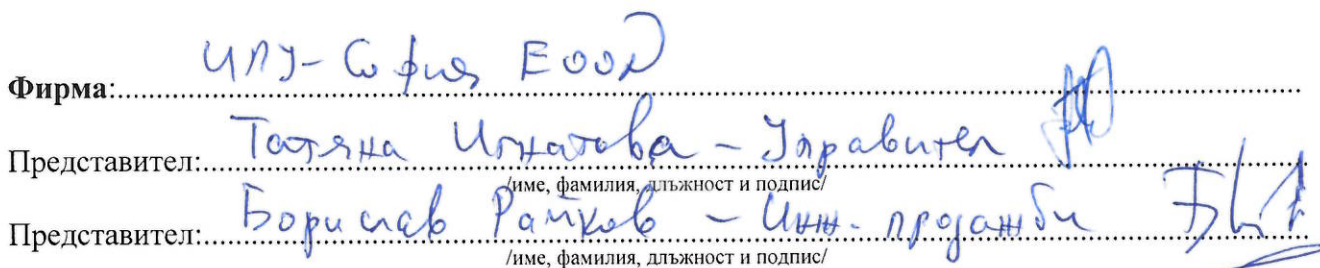 Фирма: ИПУ-София ЕООД
Представител: Татяна Игнатова – Управител
/име, фамилия, длъжност и подпис/
Представител: Борислав Райков – Инж. продажби
/име, фамилия, длъжност и подпис/